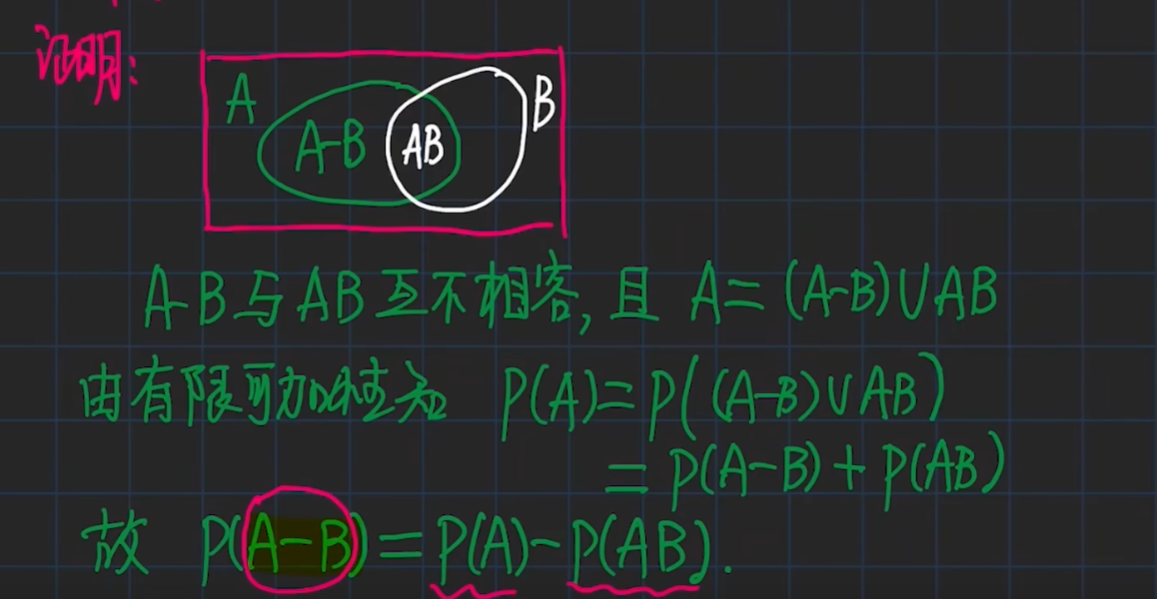 证明:
A A-B AB B
A-B与AB互不相容,且 A=(A-B)∪AB
由有限可加性知 P(A)=P((A-B)∪AB)
=P(A-B)+P(AB)
故 P(A-B)=P(A)-P(AB).